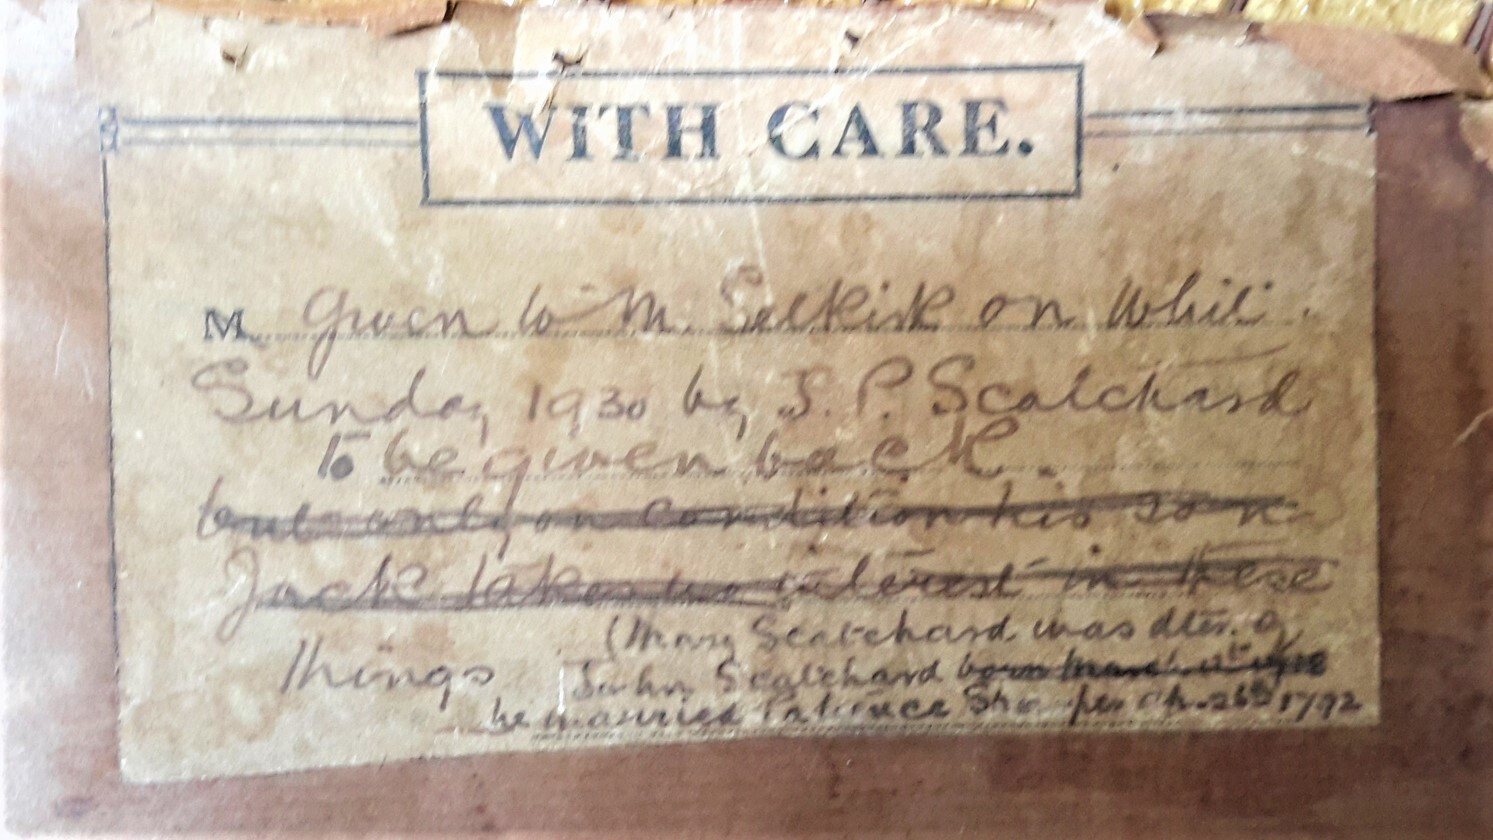 WITH CARE.
M Given to M. Selkirk on Whit.
Sunday 1930 by J. P. Scatchard
To be given back.
but only on condition his son
Jack takes no interest in these
things (Mary Scatchard was dter. of
John Scatchard born March
he married Patience 26th 1792